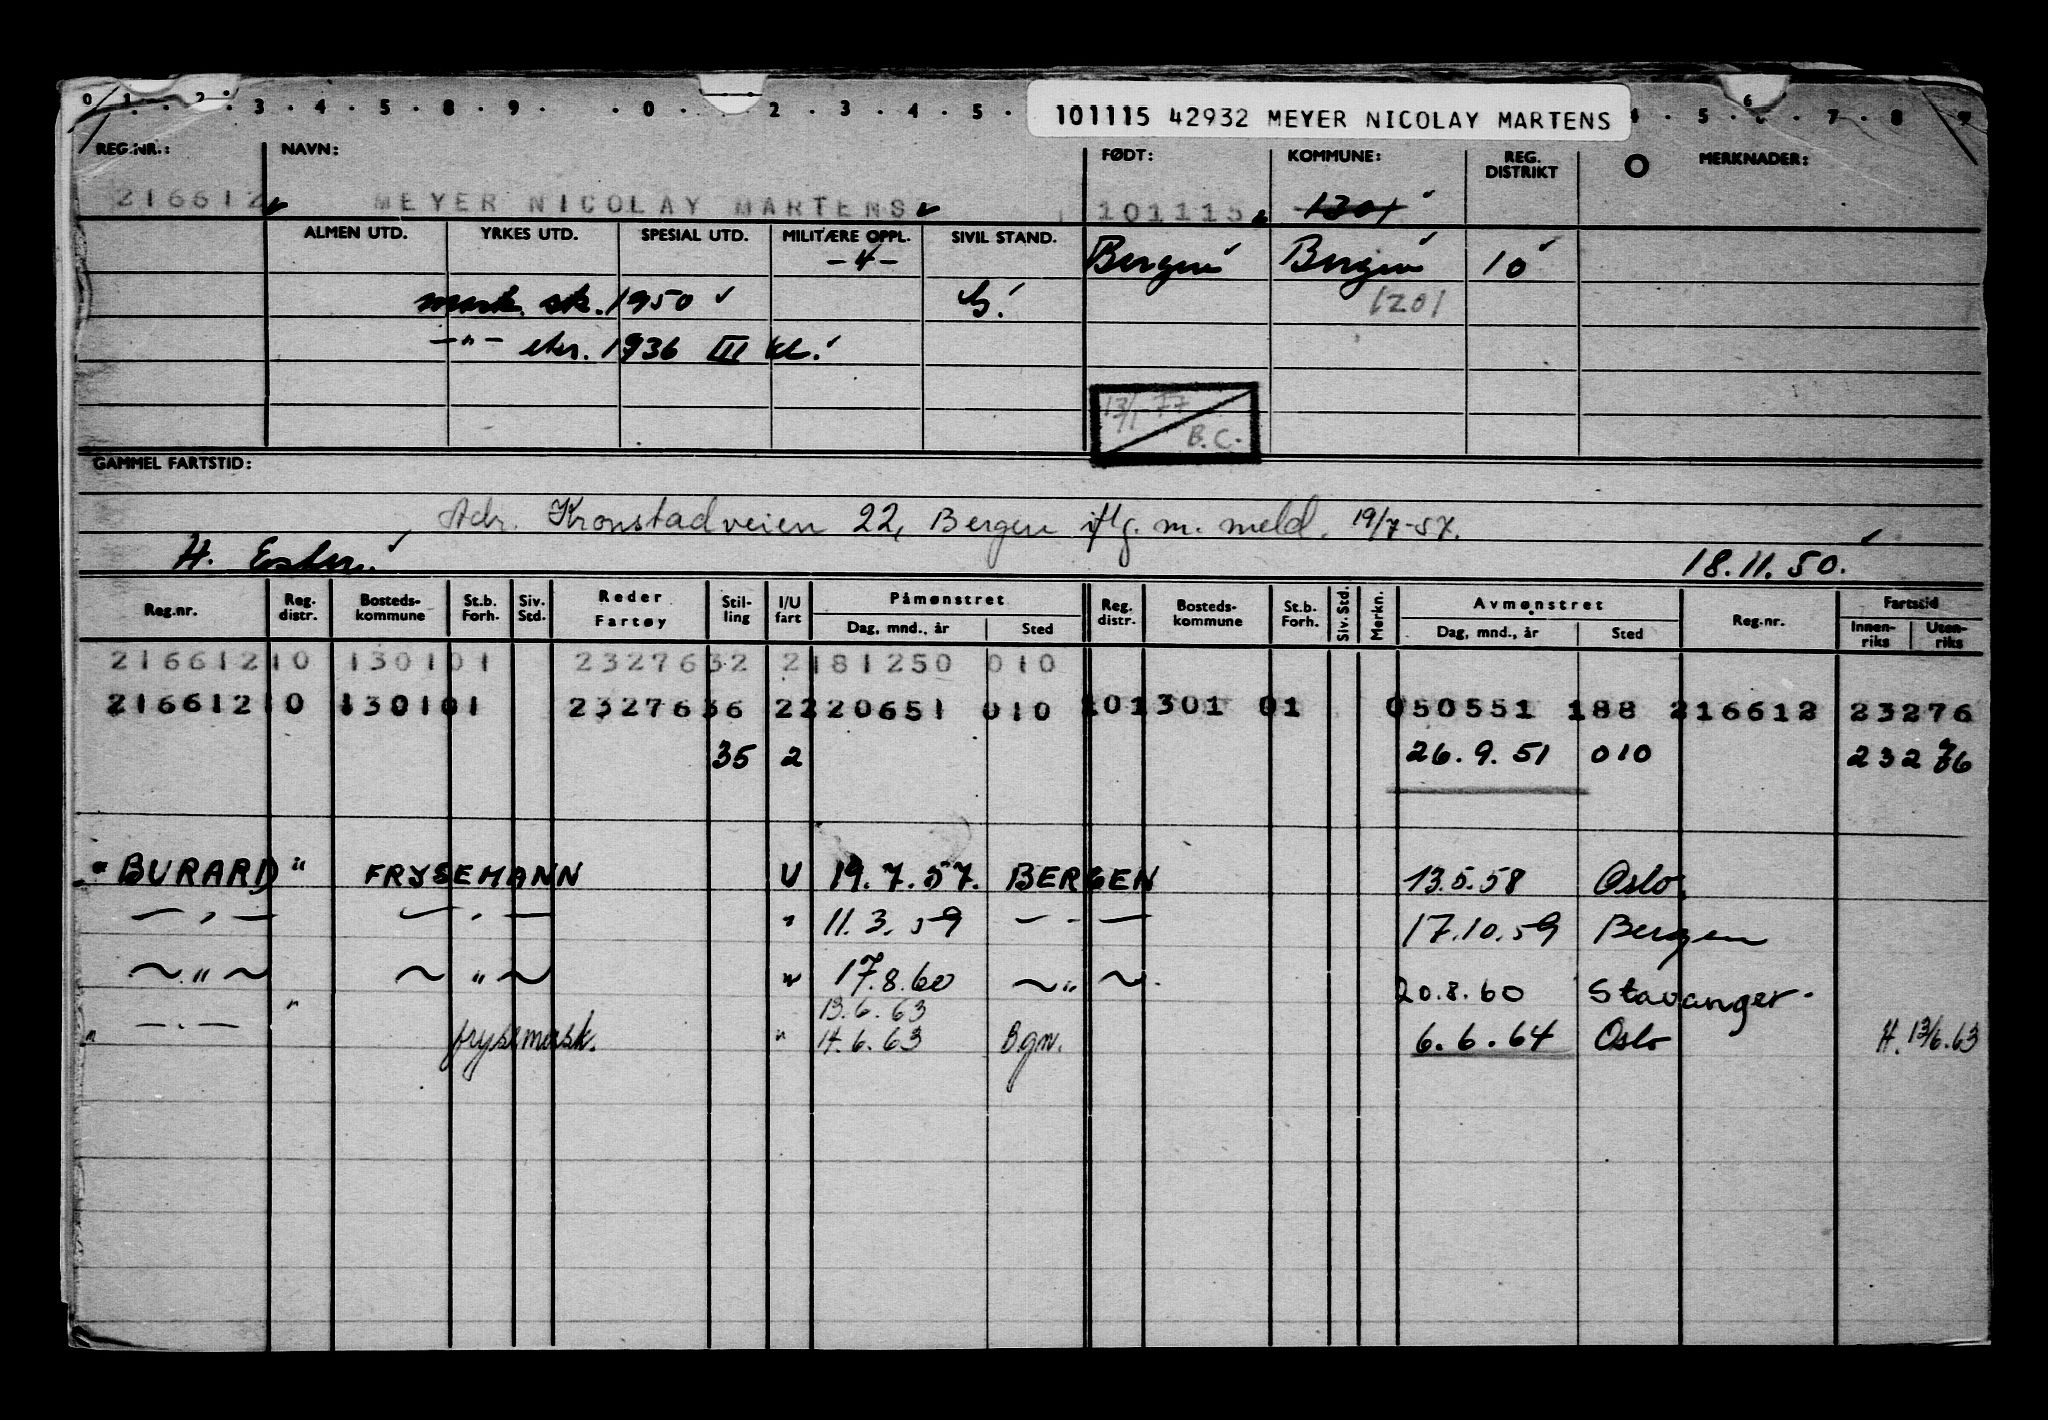 0 1 . . 2 . 3 . 4 . 5 . 8 . 9 . . 0 . . 2 . 3 . 4 . 5 . 101115 42932 MEYER NICOLAY MARTENS . 5 . 6 . 7 . 8 . 9
REG.NR.: NAVN: FØDT: KOMMUNE: REG. DISTRIKT O MERKNADER:
216612 MEYER NICOLAY MARTENS 101115 1301
ALMEN UTD. YRKES UTD. SPESIAL UTD. MILITÆRE OPPL. SIVIL STAND.
-4- Bergen Bergen 10
mask. sk. 1950 G. 1201
-"- eks. 1936 III kl.
13/1-77
B.C.
GAMMEL FARTSTID:
Adr. Kronstadveien 22, Bergen iflg. m. meld. 19/7-57.
H. 18.11.50.
Reg.nr. Reg. distr. Bosteds-kommune St.b. Forh. Siv. Std. Reder Fartøy Stil-ling I/U fart Påmønstret Dag, mnd., år Sted Reg. distr. Bosteds-kommune St.b. Forh. Siv. Std. Merkn. Avmønstret Dag, mnd., år Sted Reg.nr. Fartstid Innen-riks Uten-riks
216612 10 1301 01 23276 32 2 181250 010
216612 10 1301 01 23276 36 2 220651 010 10 1301 01 050551 188 216612 23276
35 2 26.9.51 010 23276
"BURARD" FRYSEMANN U 19.7.57. BERGEN 13.5.58 Oslo.
— , — — , — " 11.3.59 — - — 17.10.59 Bergen
~ " ~ ~ " ~ " 17.8.60 ~ " ~. 20.8.60 Stavanger.
" 13.6.63
" — . — frysemask. " 14.6.63 Bgn. 6.6.64 Oslo H. 13/6.63